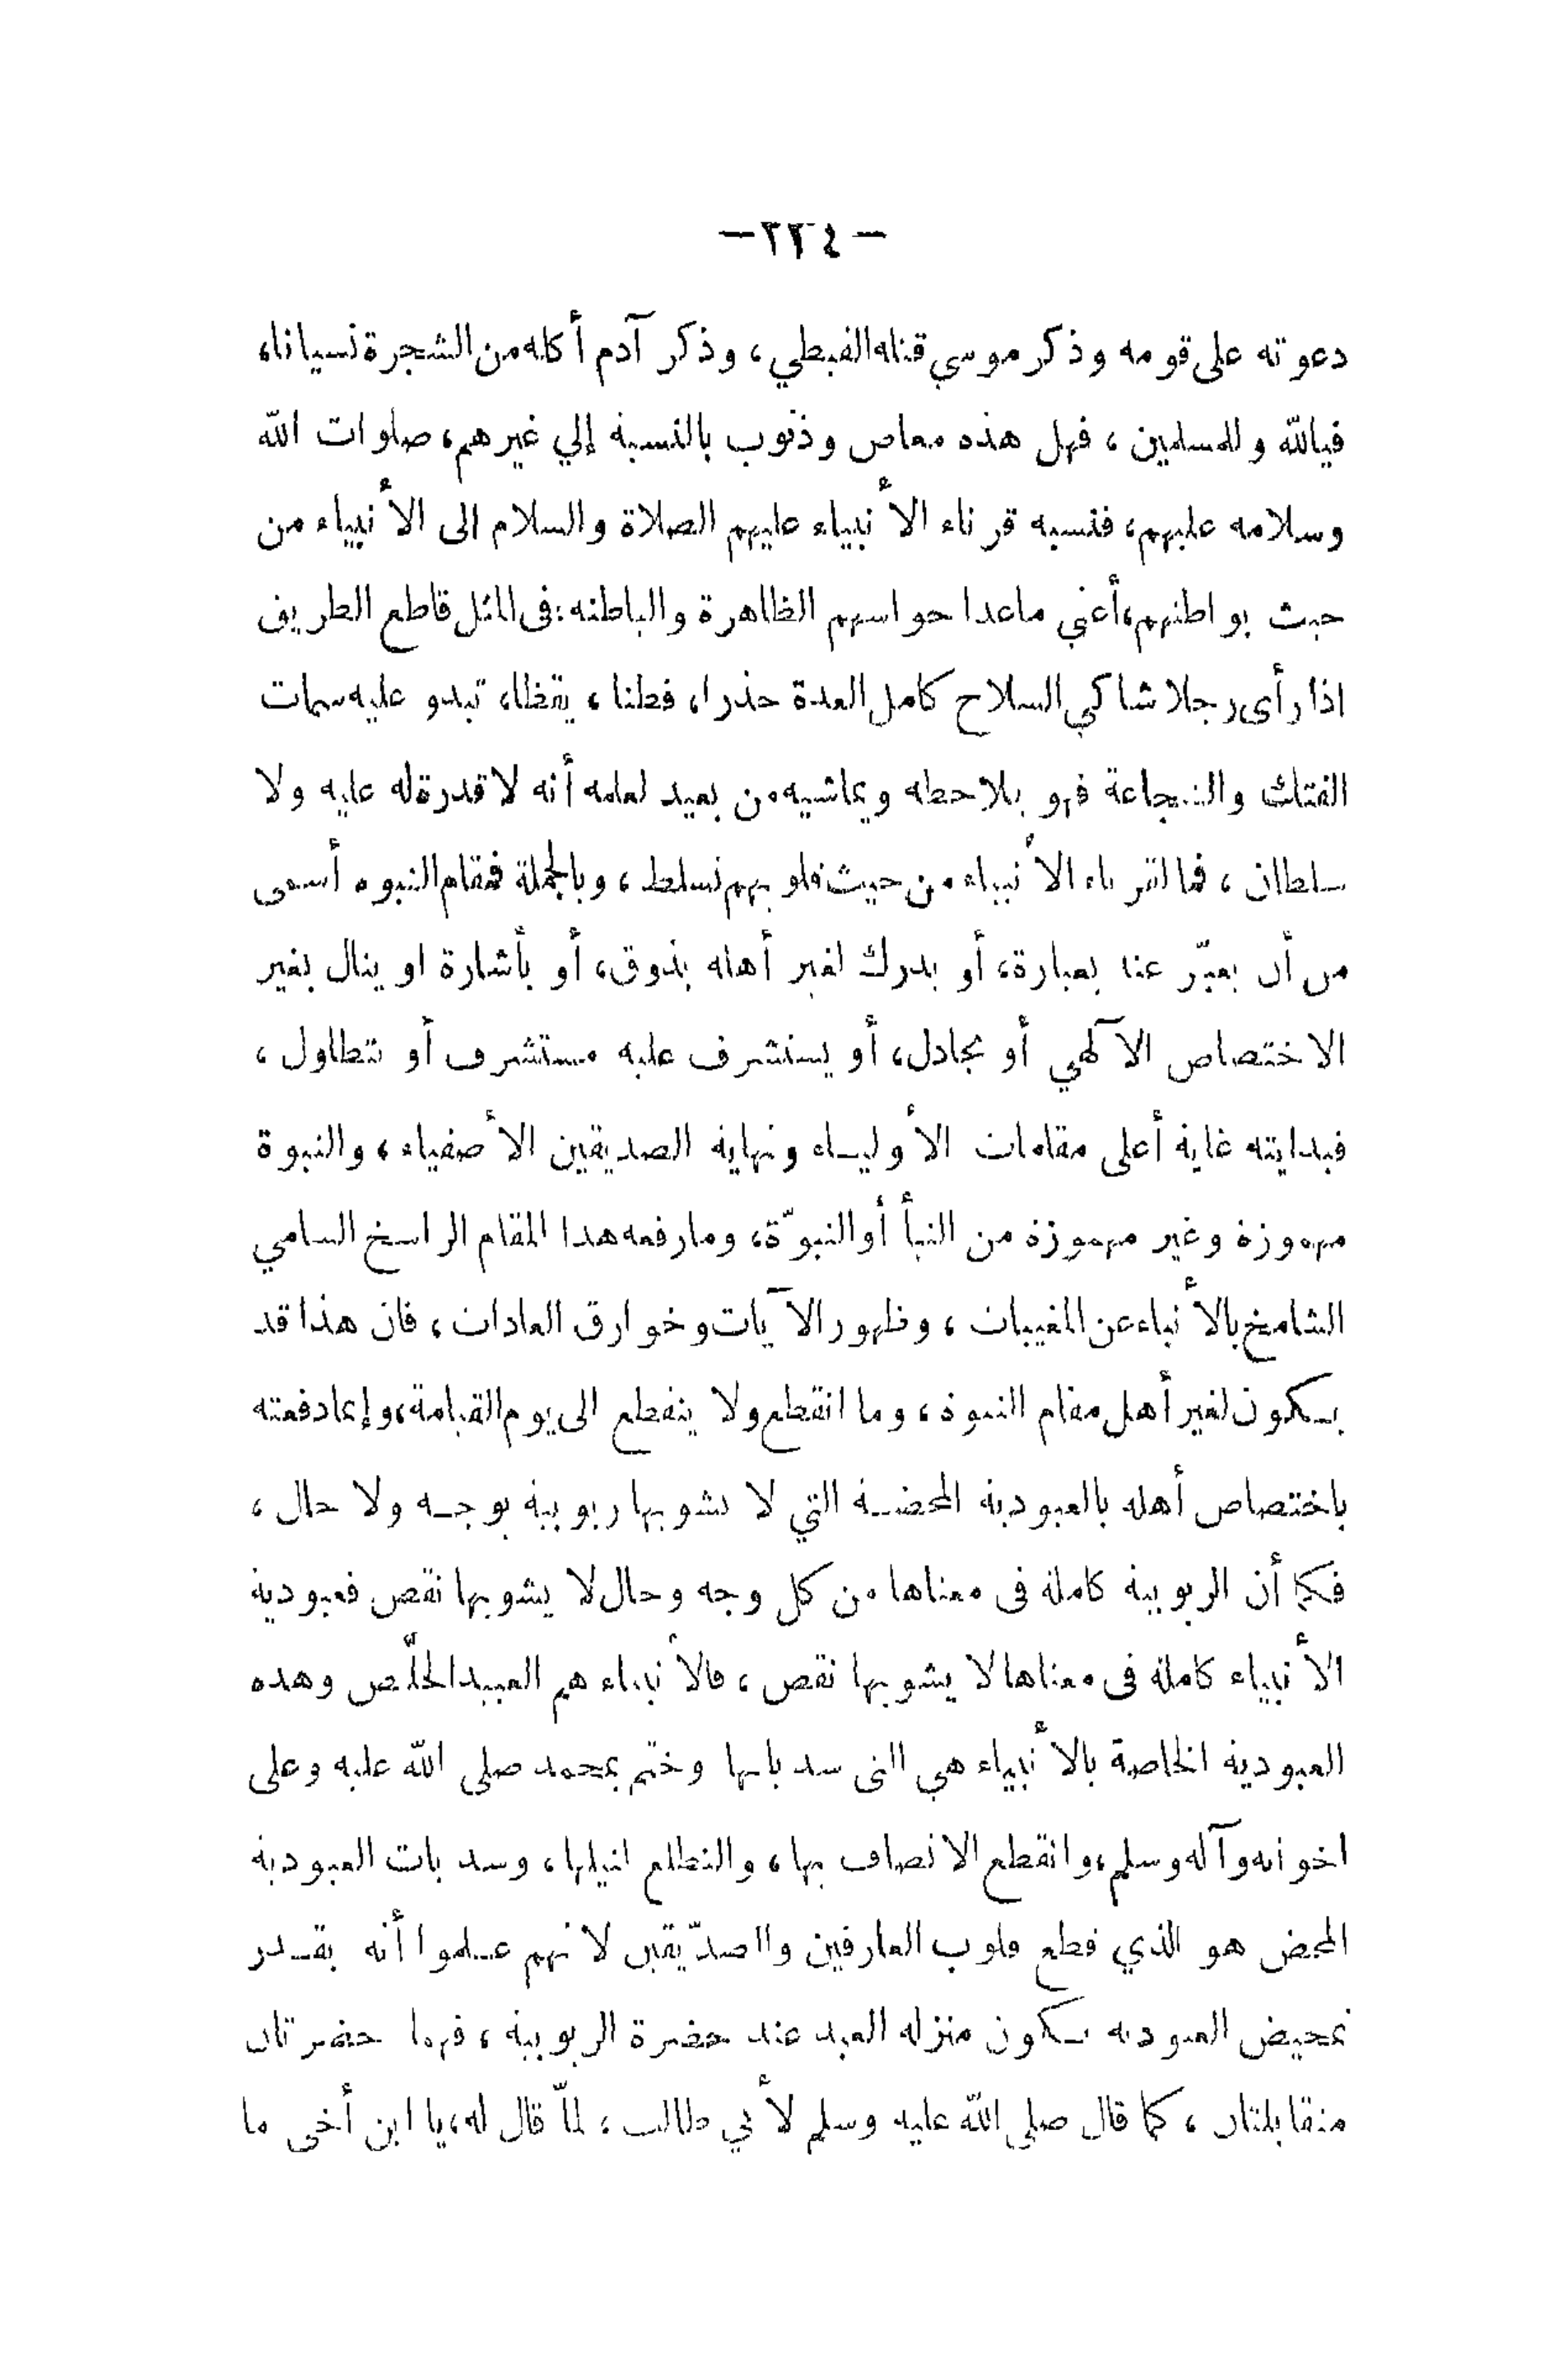 — ٢٢٤ —
دعوته على قومه وذكر موسي قتله القبطي ، وذكر آدم أكله من الشجرة نسيانا،
فيالله وللمسلمين ، فهل هذه معاص وذنوب بالنسبة إلي غيرهم، صلوات الله
وسلامه عليهم، فنسبه قرناء الأنبياء عليهم الصلاة والسلام الى الأنبياء من
حيث بواطنهم، أعني ماعدا حواسهم الظاهرة والباطنه: فى المثل قاطع الطريق
اذا رأى رجلا شاكي السلاح كامل العدة حذرا، فطنا ، يقظا، تبدو عليه سمات
الفتاك والشجاعة فهو يلاحظه ويماشيه من بعيد لعلمه أنه لا قدرة له عليه ولا
سلطان ، فما لقرناء الأنبياء من حيث قلوبهم تسلط ، وبالجملة فمقام النبوه أسمى
من أن يعبّر عنه بعبارة، أو يدرك لغير أهله بذوق، أو بأشارة او ينال بغير
الاختصاص الآلهي أو بجادل، أو يستشرف عليه مستشرف أو تتطاول ،
فبدايته غاية أعلى مقامات الأولياء ونهاية الصديقين الأصفياء ، والنبوة
مهموزة وغير مهموزة من النبأ أو النبوّة، وما رفعه هذا المقام الراسخ السامي
الشامخ بالأنباء عن المغيبات ، وظهور الآيات وخوارق العادات ، فان هذا قد
يكون لغير أهل مقام النبوة ، وما انقطع ولا ينقطع الى يوم القيامة، وإنما دفعته
باختصاص أهله بالعبودية المحضة التي لا تشوبها ربوبية بوجه ولا حال ،
فكما أن الربوبية كاملة فى معناها من كل وجه وحال لا يشوبها نقص فعبودية
الأنبياء كاملة فى معناها لا يشوبها نقص ، فالأنبياء هم العبيد الخلّص وهده
العبودية الخاصة بالأنبياء هي التى سد بابها وختم بمحمد صلى الله عليه وعلى
اخوانه وآله وسلم، وانقطع الاتصاف بها ، والتطلع لنيلها ، وسد باب العبودية
المحض هو الذي قطع قلوب العارفين والصدّيقين لانهم علموا أنه بقدر
تمحيض العبوديه تكون منزله العبد عند حضرة الربوبية ، فهما حضرتان
متقابلتان ، كما قال صلى الله عليه وسلم لأبي طالب ، لمّا قال له، يا ابن أخى ما